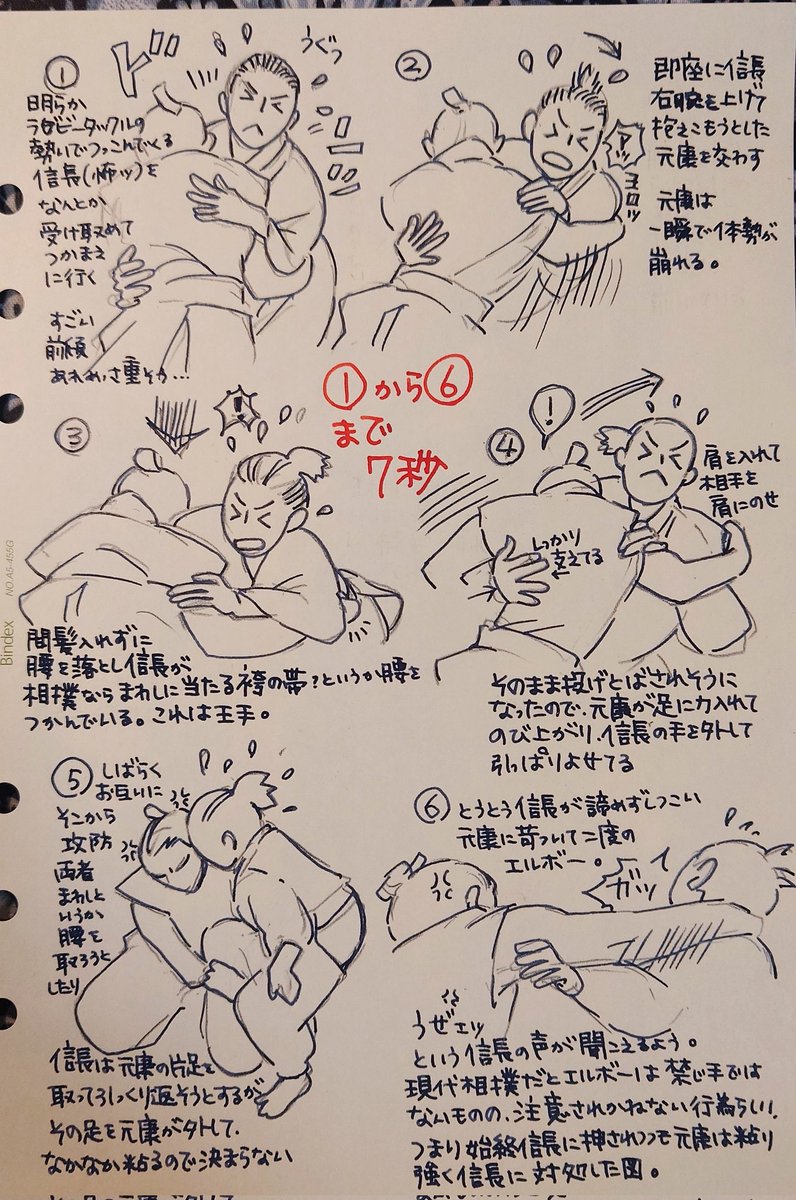 ①
ドドッ
うぐっ
明らか
ラグビータックルの
勢いでつっこんでくる
信長(怖ッ)を
なんとか
受け取めて
つかまえ
に行く
すごい
前傾
あれめっさ重そう…
②
即座に信長
右腕を上げて
抱えこもうとした
元康を交わす
ヨロッ
元康は
一瞬で体勢が
崩れる。
①から⑥
まで
7秒
③
!
間髪入れずに
腰を落とし信長が
相撲ならまわしに当たる袴の帯?というか腰を
つかんでいる。これは王手。
④
!
肩を入れて
相手を
肩にのせ
しっかり
支えてる
そのまま投げとばされそうに
なったので、元康が足に力入れて
のび上がり、信長の手を外して
引っぱりよせてる
⑤しばらく
お互いに
そこから
攻防
両者
まわしと
いうか
腰を
取ろうと
したり
信長は元康の片足を
取ってひっくり返そうとするが
その足を元康が外して、
なかなか粘るので決まらない
⑥とうとう信長が諦めずしつこい
元康に苛ついて二度の
エルボー。
ガッ
うぜェッ
という信長の声が聞こえるよう。
現代相撲だとエルボーは禁じ手では
ないものの、注意されかねない行為らしい、
つまり始終信長に押されつつも元康は粘り
強く信長に対処した図。
Bindex NO.A5-455G